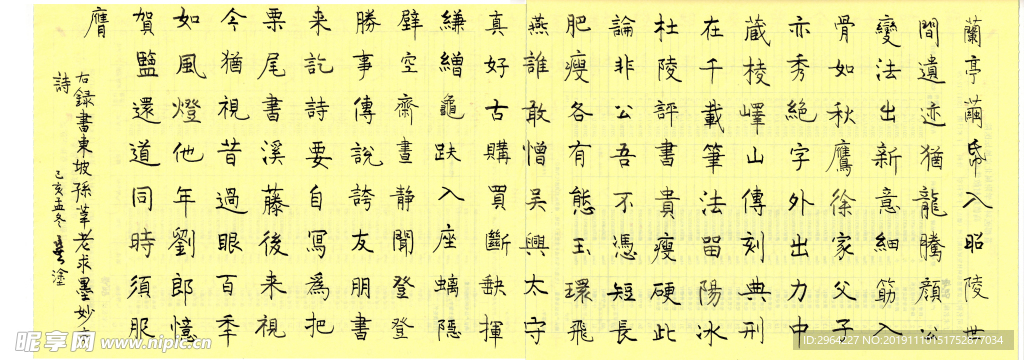 蘭亭繭帋入昭陵世
間遺迹猶龍騰顏公
變法出新意細筋入
骨如秋鷹徐家父子
亦秀絕字外出力中
蔵棱嶧山傳刻典刑
在千載筆法留陽冰
杜陵評書貴瘦硬此
論非公吾不憑短長
肥瘦各有態玉環飛
燕誰敢憎吳興太守
真好古購買斷缺揮
縑繒龜趺入座螭隱
壁空齋晝静聞登登
勝事傳說誇友朋書
来訖詩要自寫為把
栗尾書溪藤後来視
今猶視昔過眼百年
如風燈他年劉郎憶
賀監還道同時須服
膺
右録書東坡孫莘老求墨妙亭
詩
己亥孟冬 塗
昵享网 www.nipic.cn
ID:2964227 NO:20191110151752877034